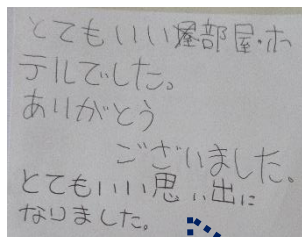 とてもいい部屋・ホ
テルでした。
ありがとう
ございました。
とてもいい思い出に
なりました。